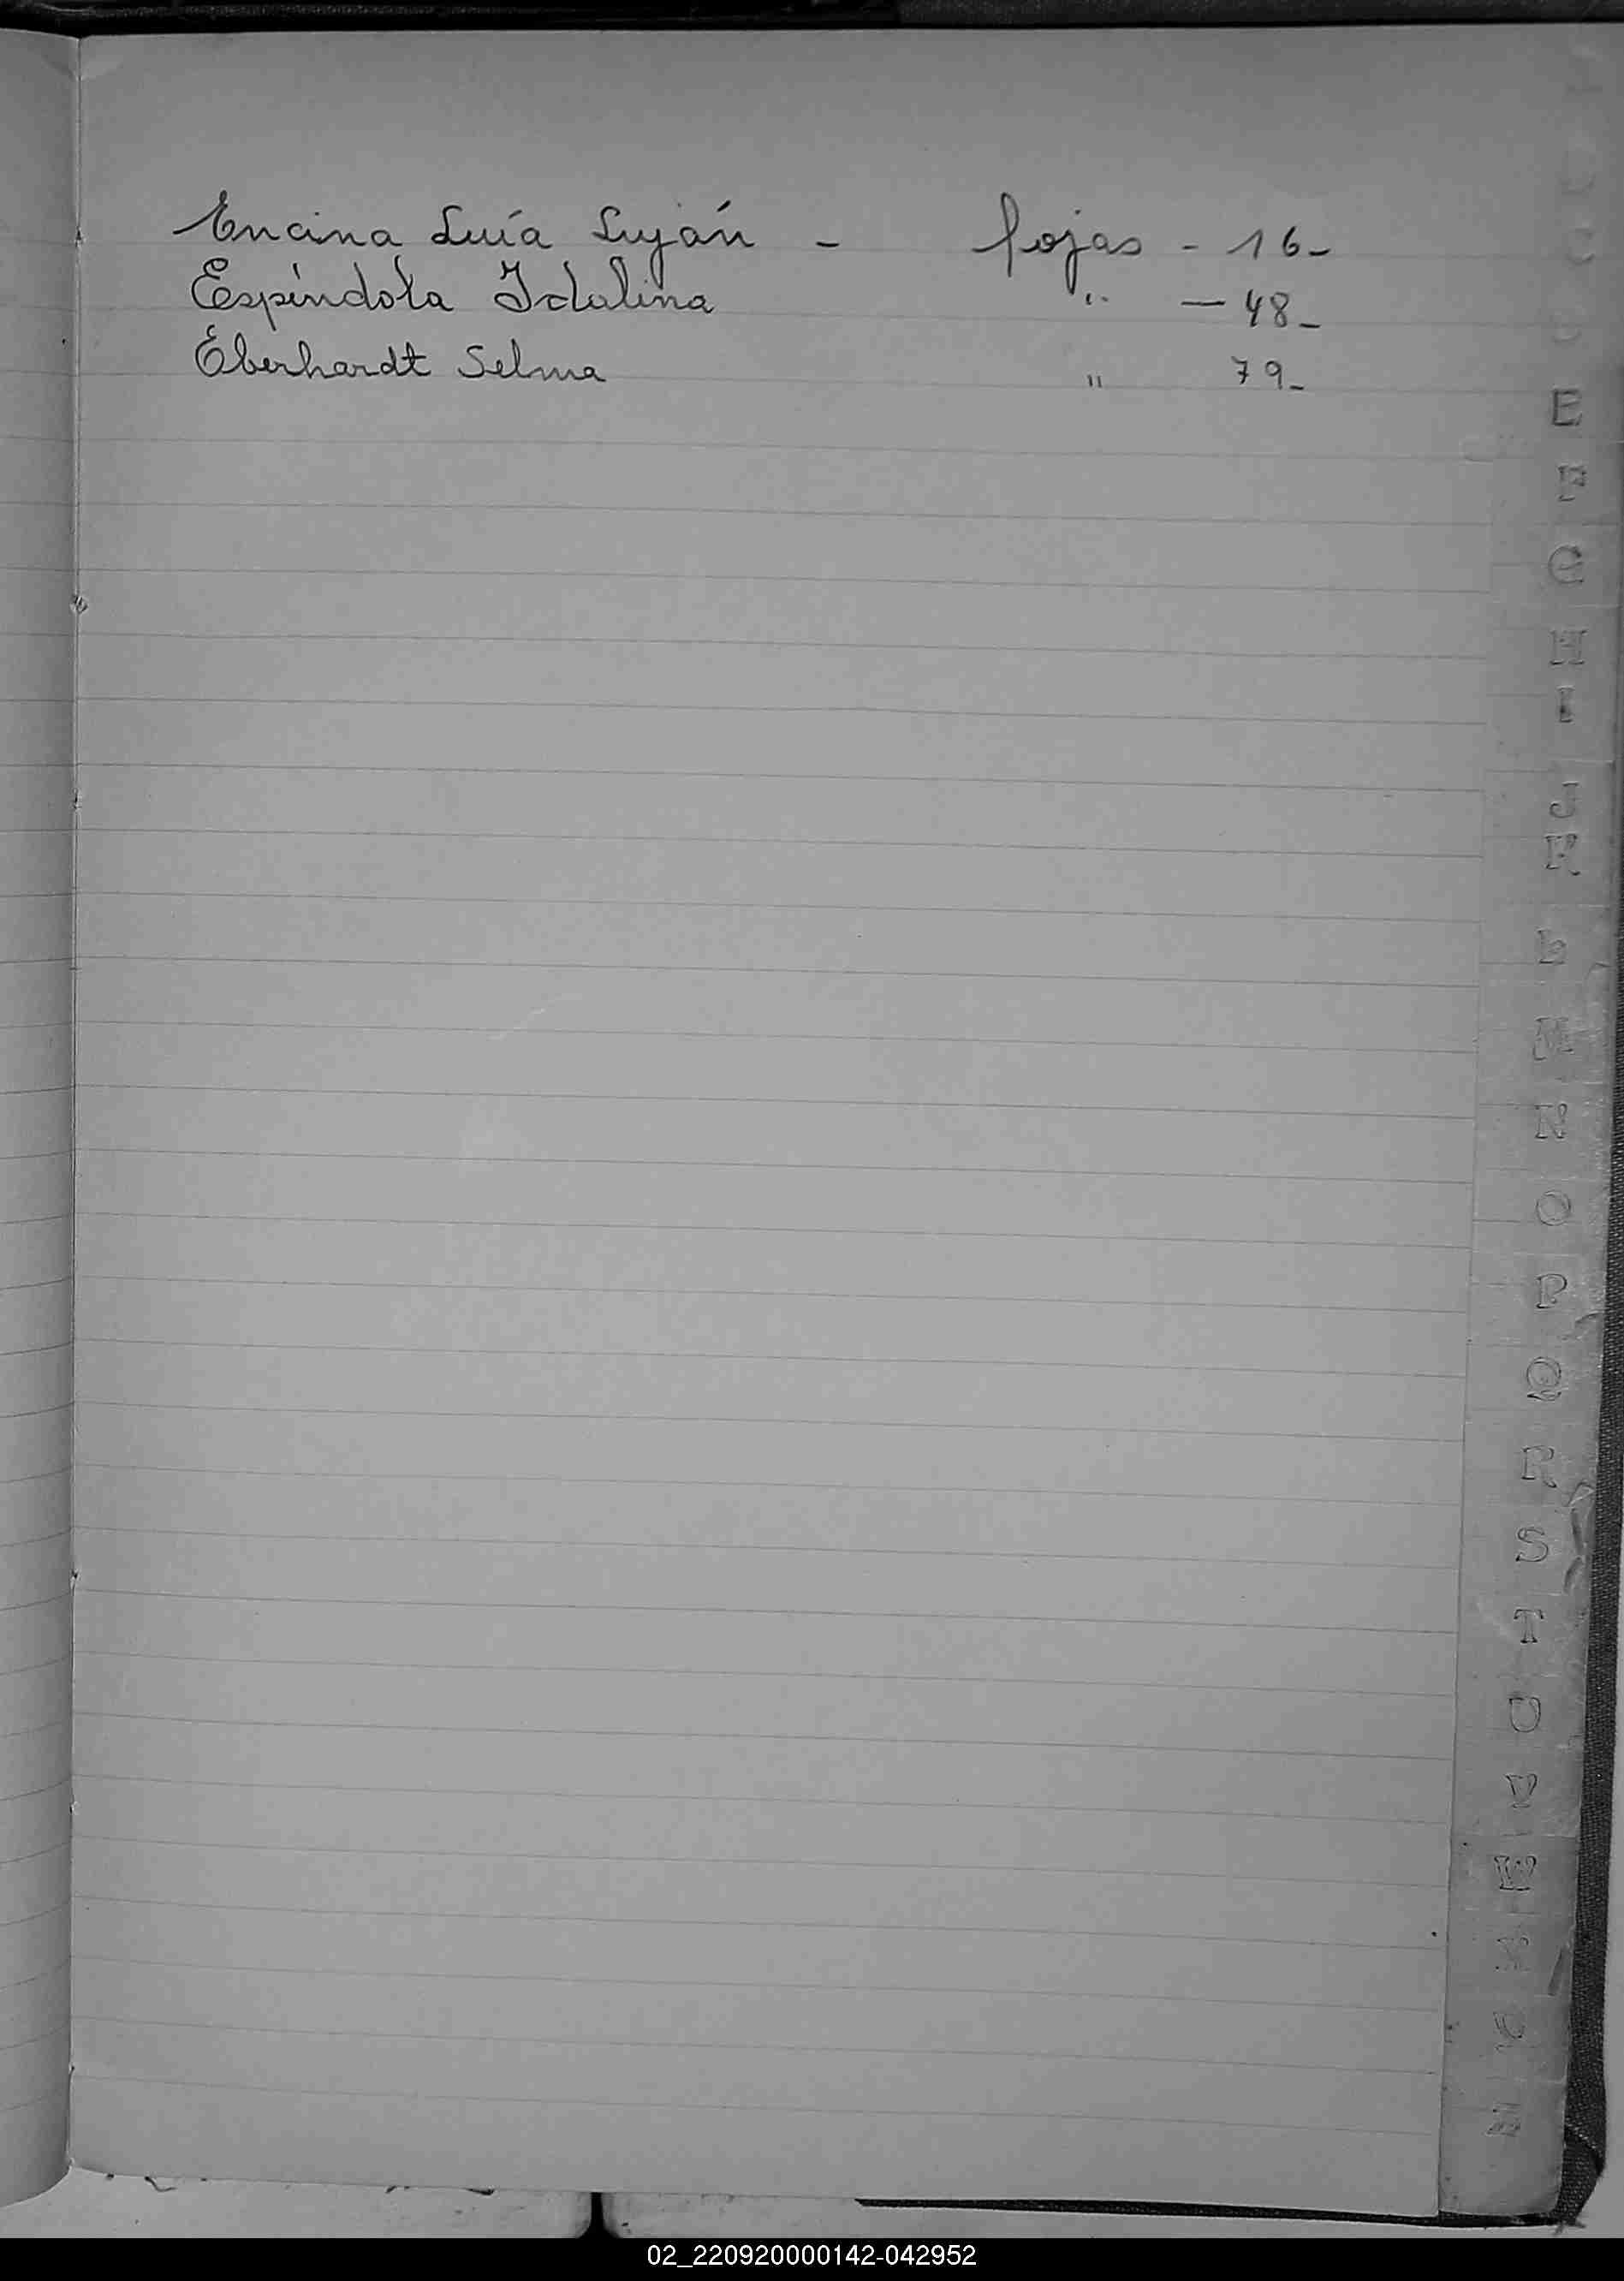 Encina Luía Luján - fojas - 16-
Espíndola Idalina " - 48-
Eberhardt Selma " 79-
E
F
G
H
I
J
K
L
M
N
O
P
Q
R
S
T
U
V
W
X
Y
Z
02_220920000142-042952